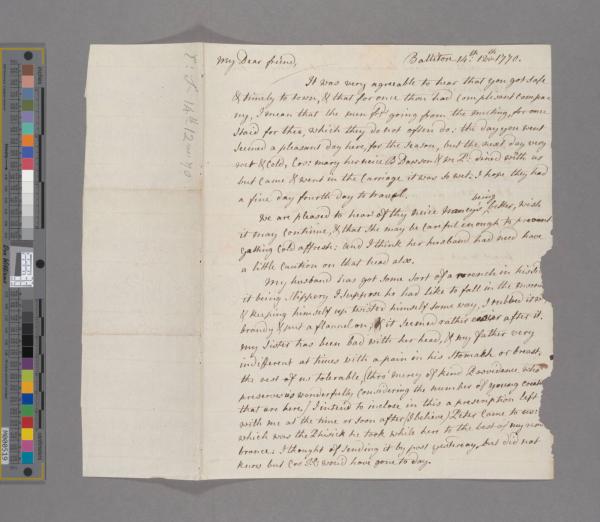 My Dear friend, Balliton 14th. 12th. 1770.
It was very agreable to hear that you got safe
& timely to town, & that for once thou had complisant compa
ny, I mean that the men fds going from the meeting, for one
staid for thee, which they do not often do: the day you went
seemed a pleasant day here, for the season, but the next day very
wet & cold, Cos: mary her neice B Dawson & dined with us
but came & went in the Carriage it was so wet: I hope they had
a fine day fourth day to travel.
we are pleased to hear of thy neice Nancy's being better, wish
it may continue, & that she may be careful enough to prevent
getting cold afresh: and I think her husband had need have
a little caution on that head also.
My husband has got some sort of a wrench in his side
it being slippery I suppose he had like to fall in the
& keeping himself up twisted himself some way, I rubbed it
brandy & put a flannel on, & it seemed rather easier after it.
my Sister has been bad with her head, & my father very
indifferent at times with a pain in his stomakh or breast,
the rest of us tolerable, (thro' mercy of kind Providence who
preserves us wonderfully considering the number of young
that are here) I intend to inclose in this a prescription left
with me at the time or soon after (I believe) Peter came to
which was the Phisick he took while here to the best of my
brance: I thought of sending it by post yesterday, but did not
know but Cos: would have gone to day.
14th 12mo 70
M008519